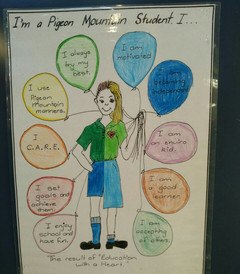 I'm a Pigeon Mountain Student, I...
I always
try my
best.
I am
motivated
I use
Pigeon
Mountain
manners.
I
C.A.R.E.
I am
an enviro
kid.
I set
goals and
achieve
them.
I am
a good
learner.
I enjoy
school and
have fun.
I am
of others.
The result of "Education
with a Heart"